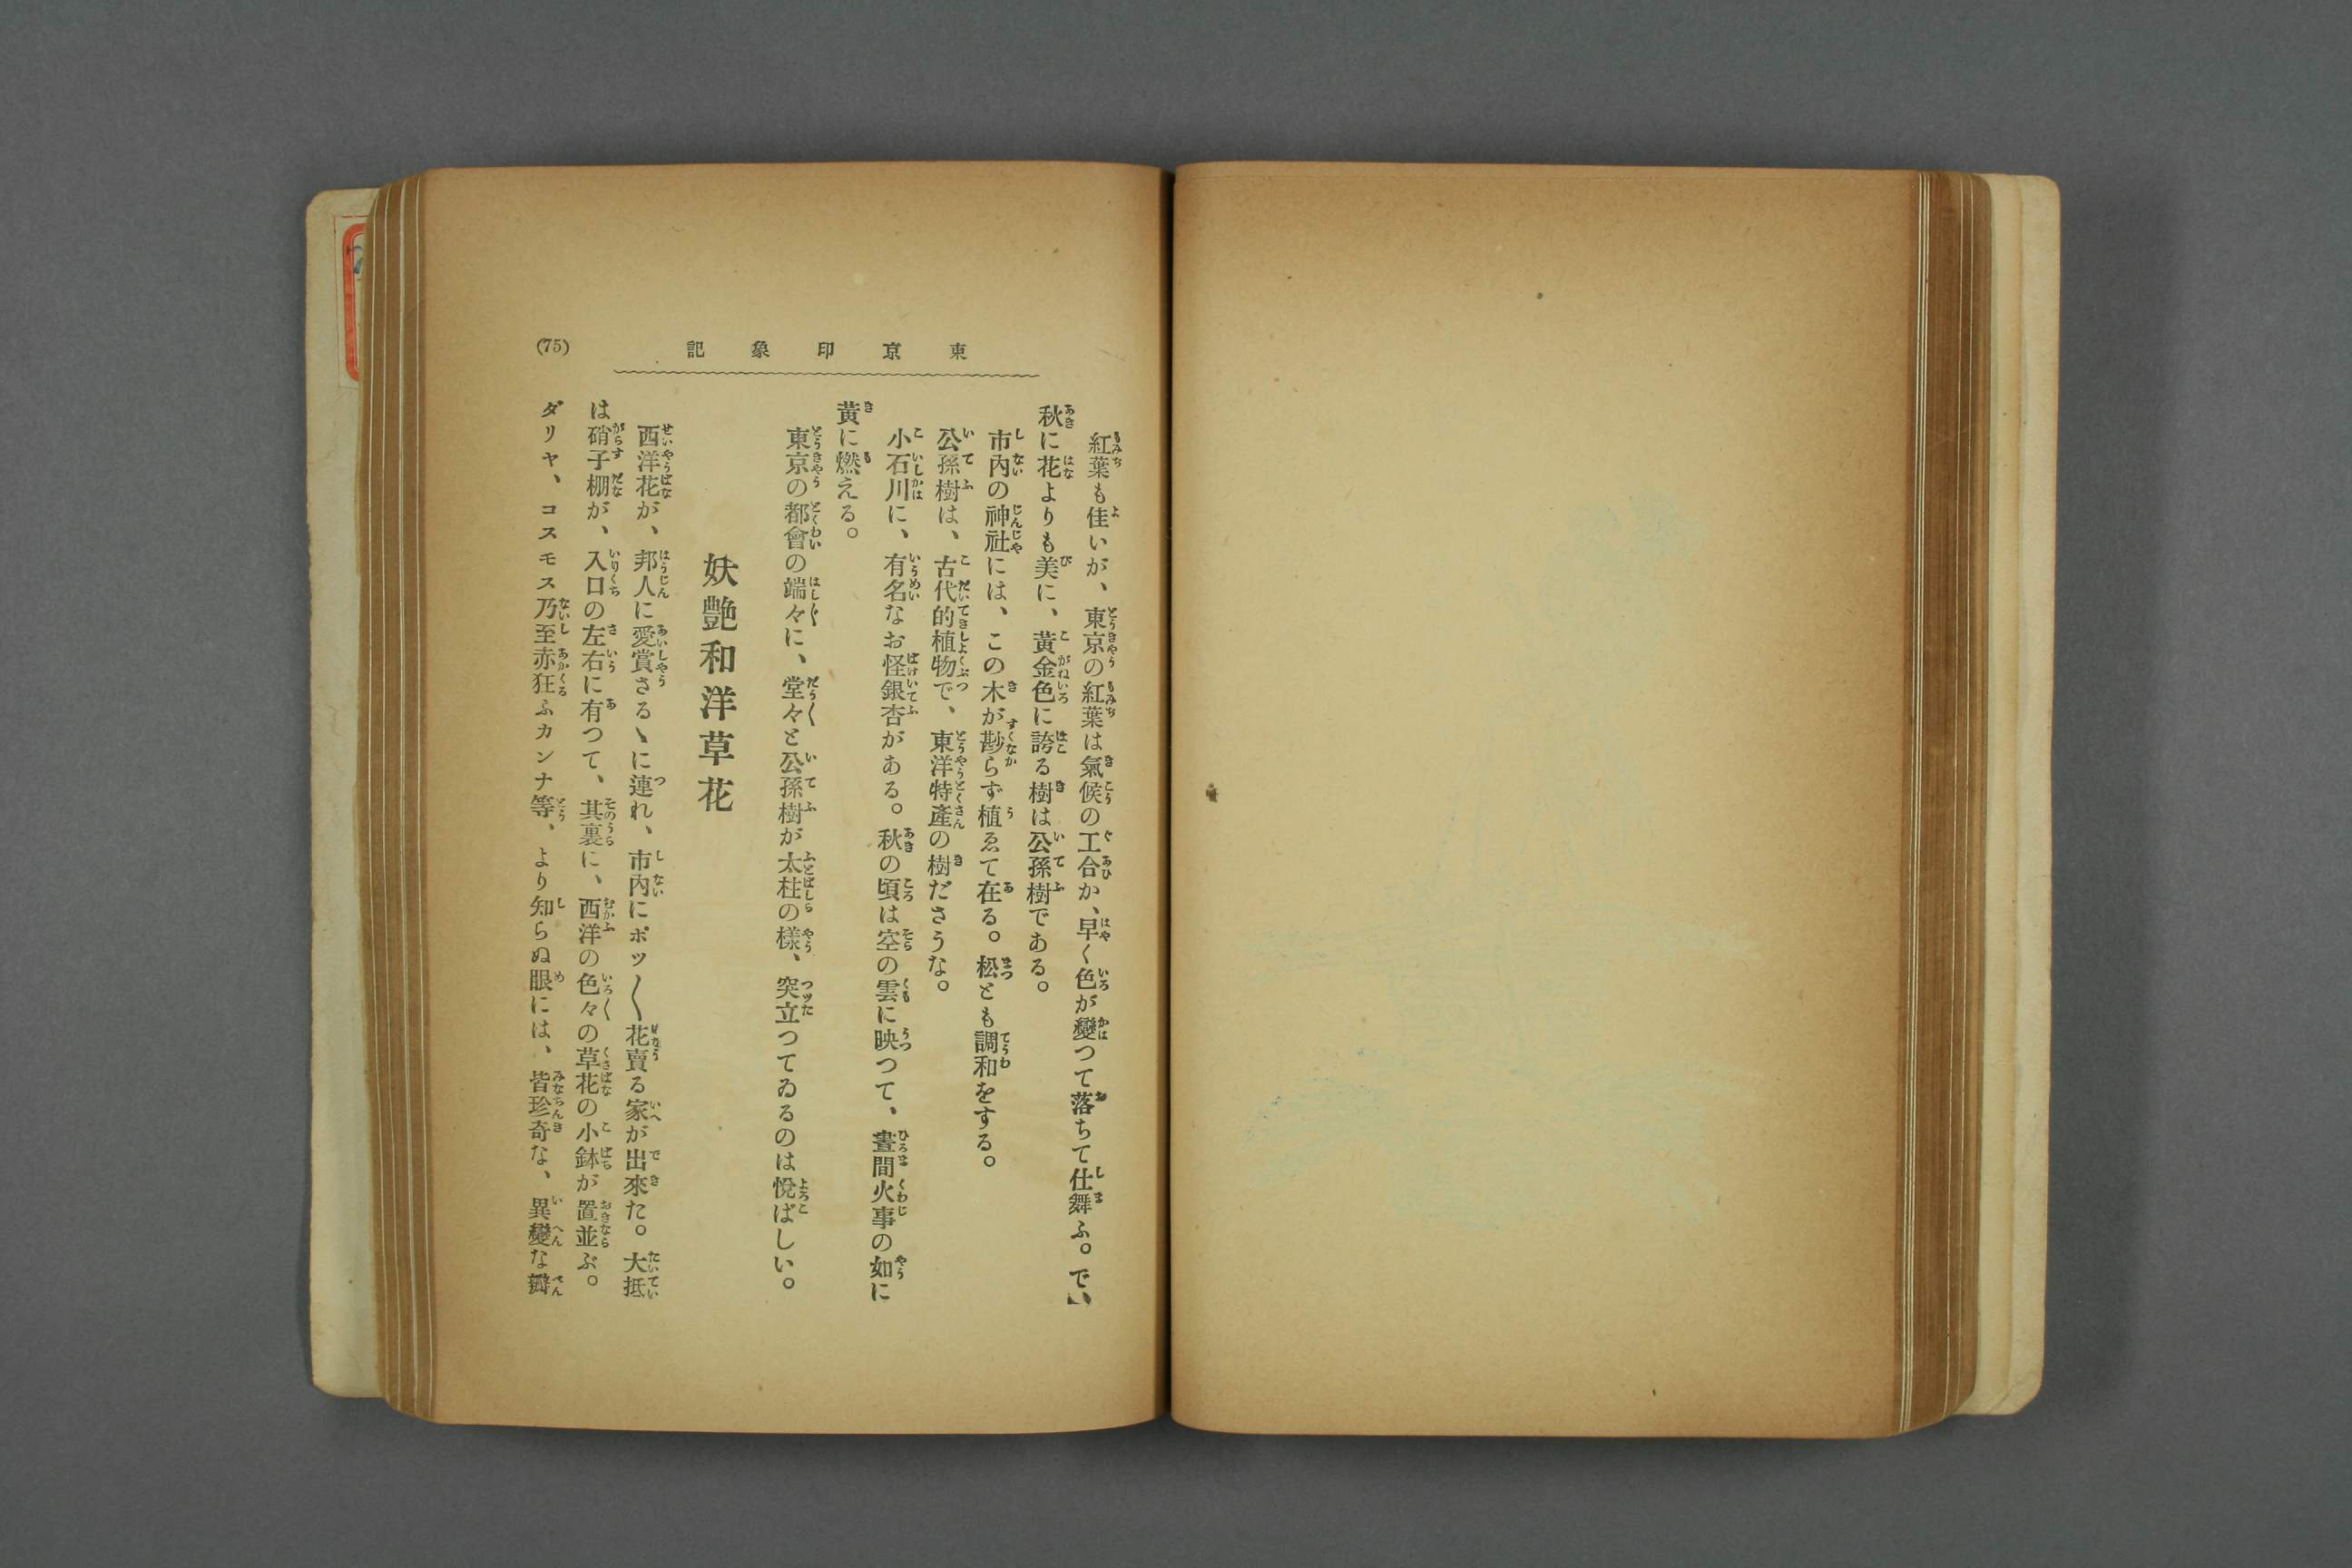 東京印象記
(75)
紅葉も佳いが、東京の紅葉は氣候の工合か、早く色が變つて落ちて仕舞ふ。で、
秋に花よりも美に、黃金色に誇る樹は公孫樹である。
市內の神社には、この木が尠らず植ゑて在る。松とも調和をする。
公孫樹は、古代的植物で、東洋特產の樹ださうな。
小石川に、有名なお怪銀杏がある。秋の頃は空の雲に映つて、晝間火事の如に
黃に燃える。
東京の都會の端々に、堂々と公孫樹が太柱の樣、突立つてゐるのは悅ばしい。
妖艶和洋草花
西洋花が、邦人に愛賞さるゝに連れ、市內にポツ〳〵花賣る家が出來た。大抵
は硝子棚が、入口の左右に有つて、其裏に、西洋の色々の草花の小鉢が置並ぶ。
ダリヤ、コスモス乃至赤狂ふカンナ等、より知らぬ眼には、皆珍奇な、異變な瓣